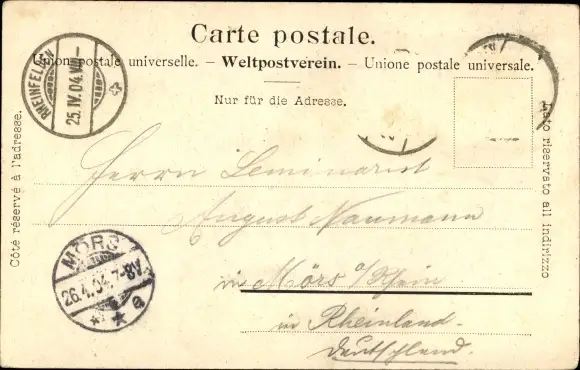 Carte postale.
Union postale universelle. – Weltpostverein. – Unione postale universale.
Nur für die Adresse.
Côté réservé à l'adresse.
Lato riservato all indirizzo
RHEINFELDEN
25.IV.04.VII–
Herrn Seminarist
August Naumann
in Mörs a/Rhein
in Rheinland.
Deutschland.
MÖRS
26.4.04.7-8V.
* * e